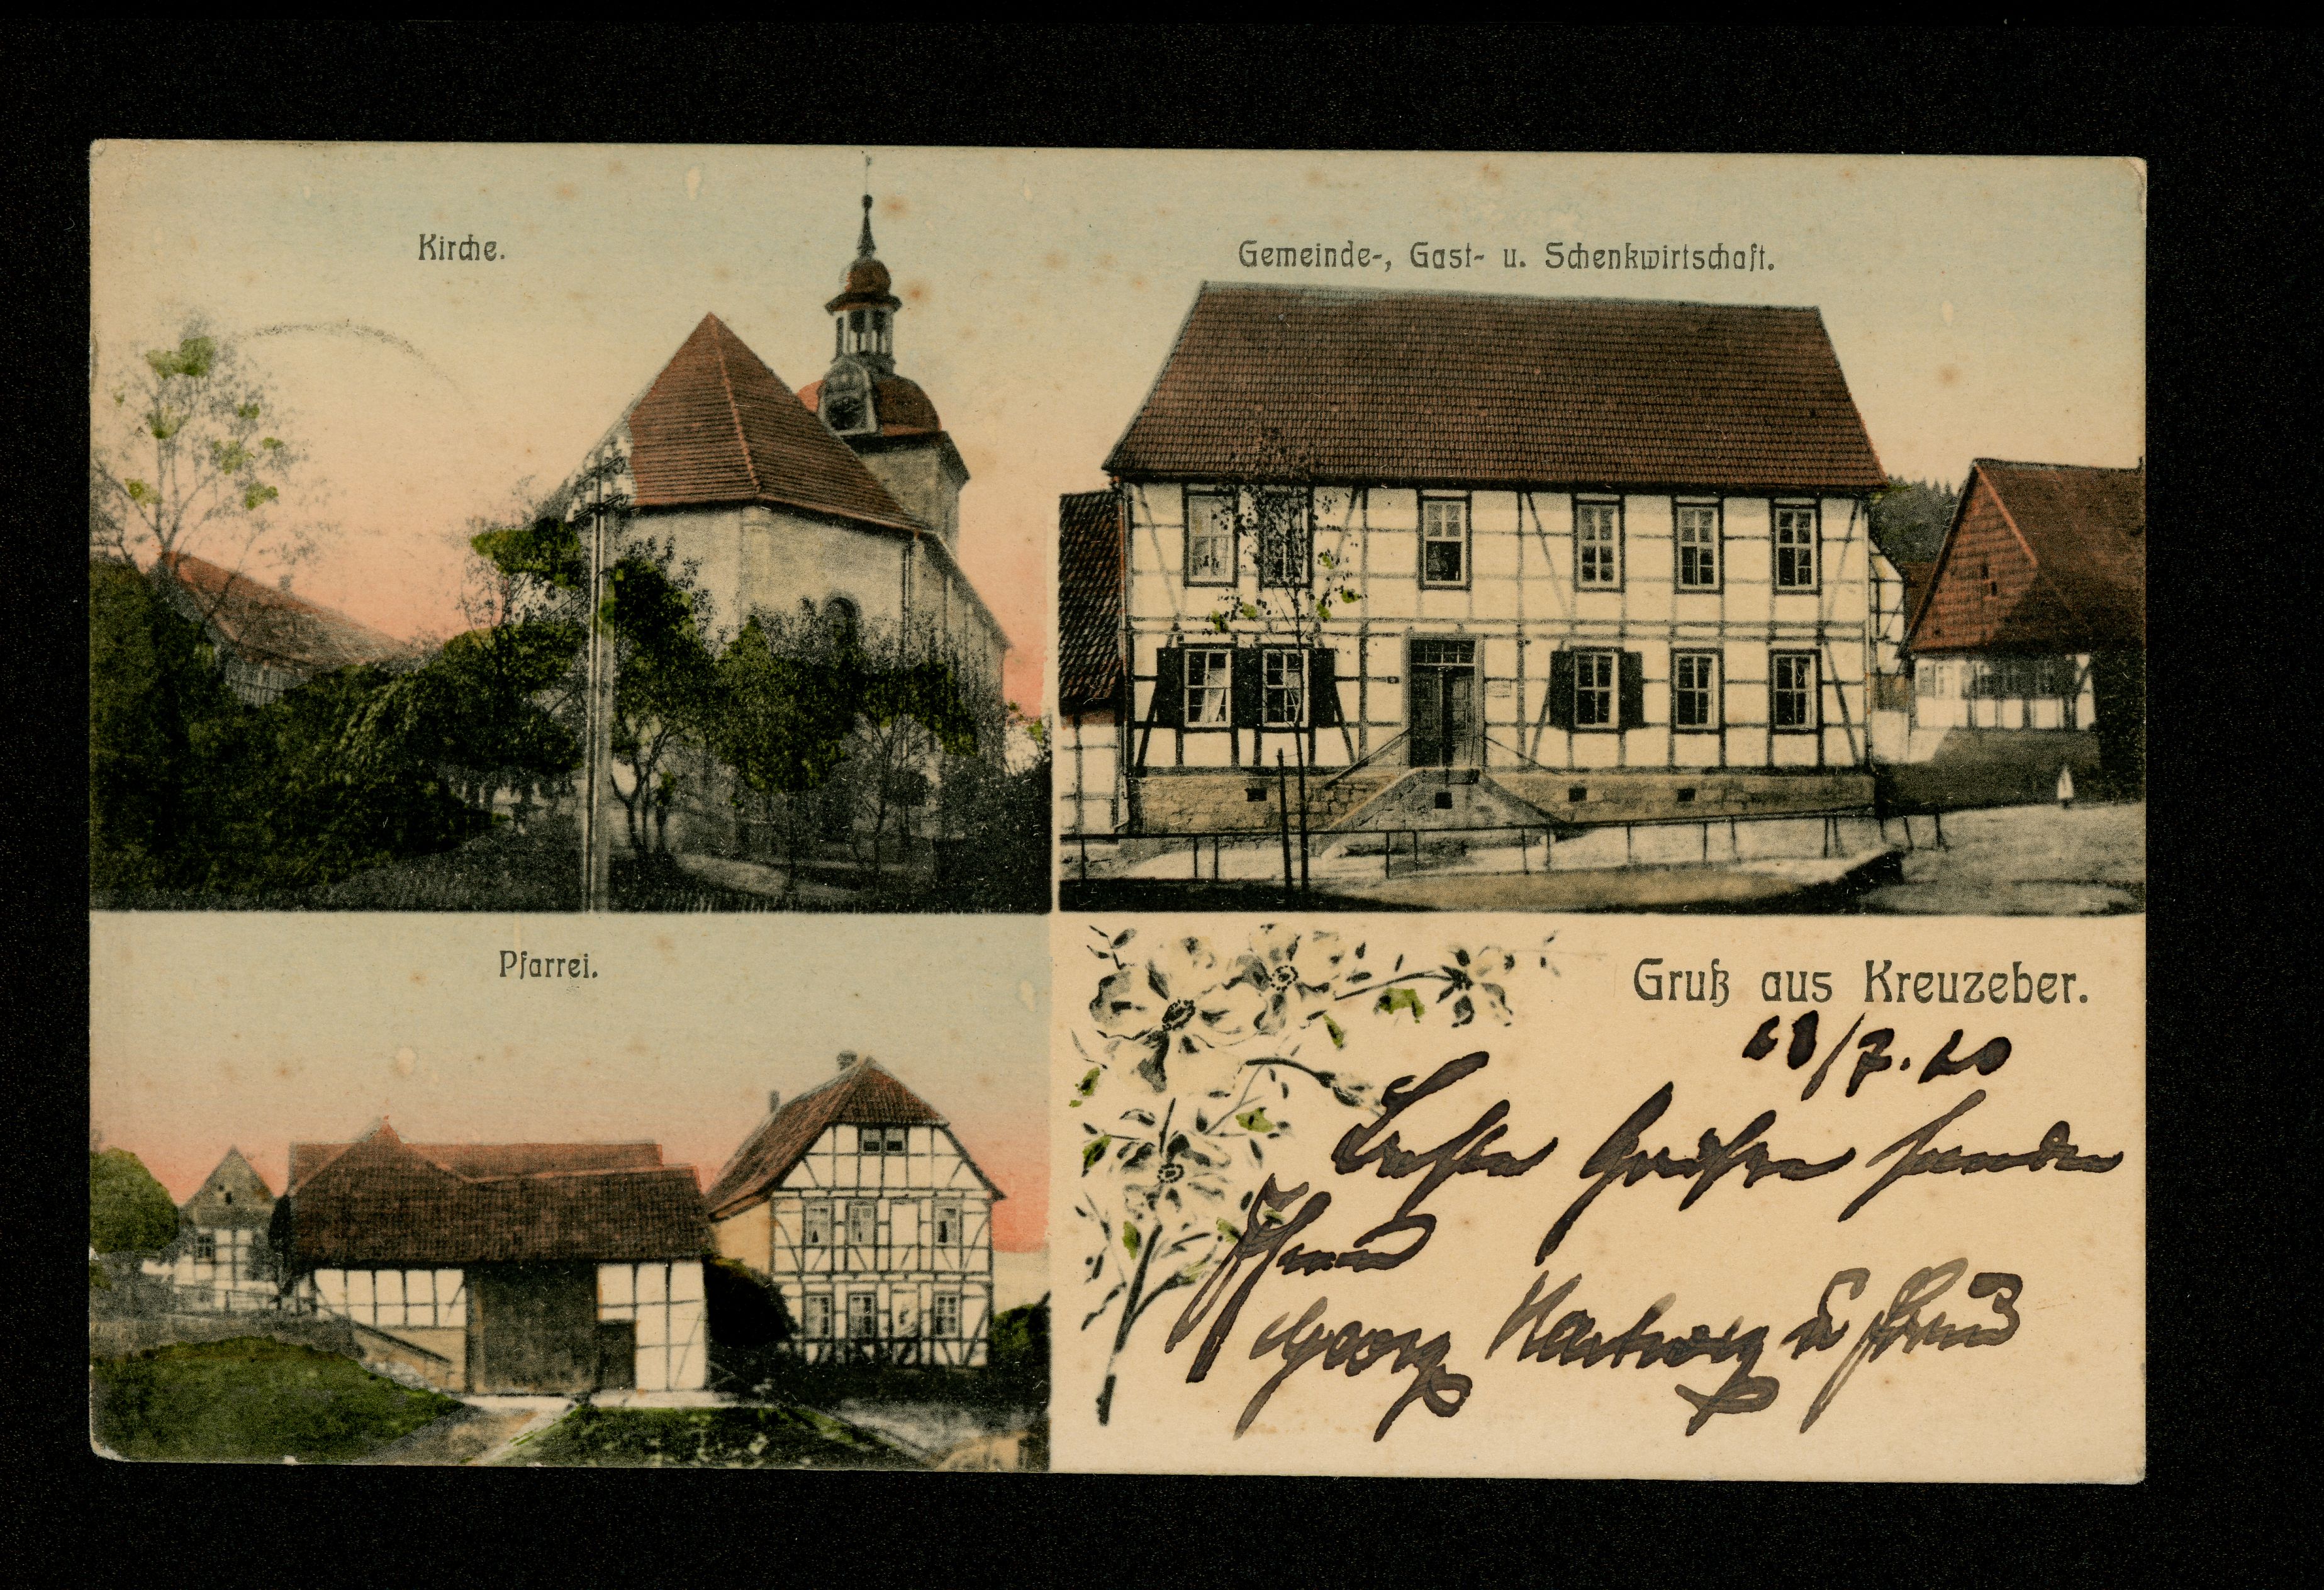 Kirche.
Gemeinde-, Gast- u. Schenkwirtschaft.
Pfarrei.
Gruß aus Kreuzeber.
Beste Grüße senden
Georg Hartwig u Frau